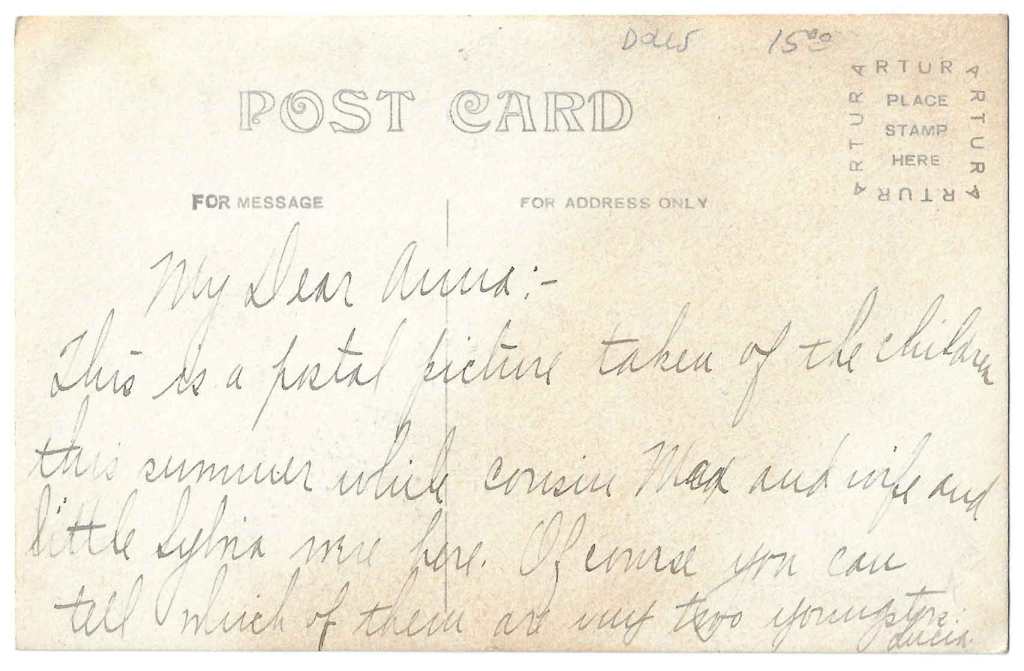 Dolls 15.00
POST CARD
ARTURA
ARTURA
ARTURA
ARTURA
PLACE
STAMP
HERE
FOR MESSAGE
FOR ADDRESS ONLY
My Dear Anna:-
This is a postal picture taken of the children
this summer while cousin Max and wife and
little Sylvia were here. Of course you can
tell which of them are my two youngsters.
Lucia.